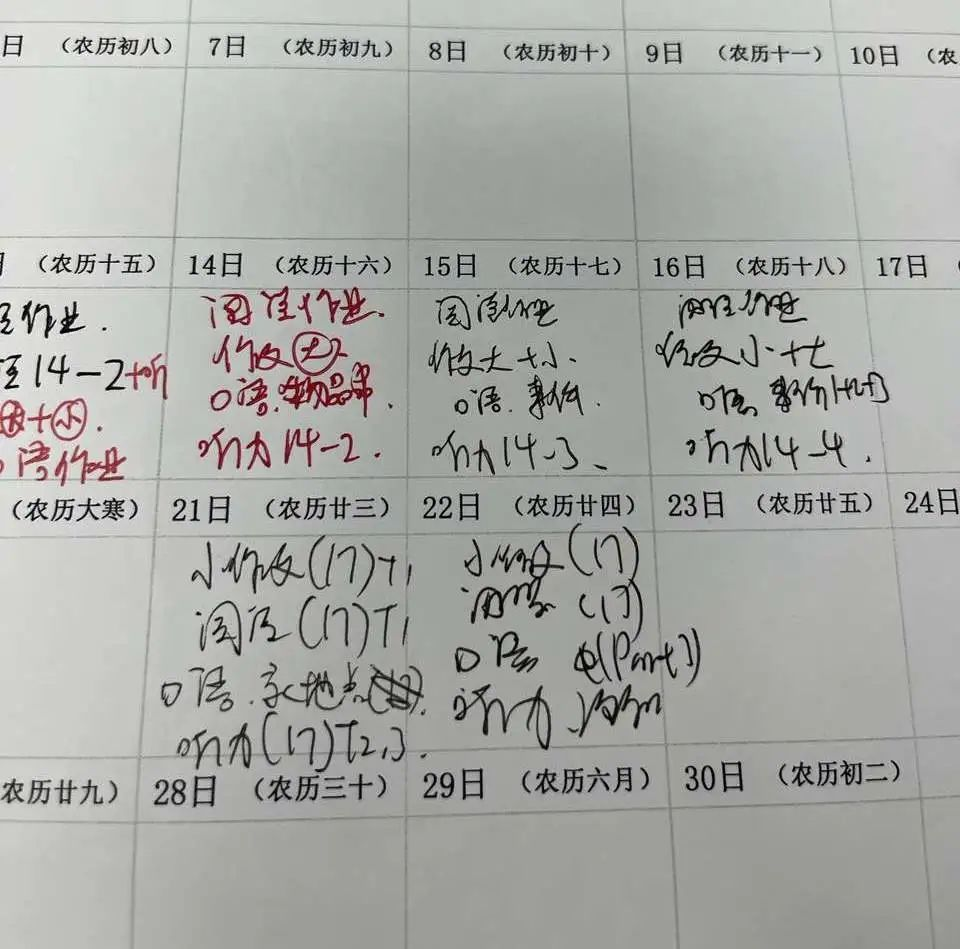 日 （农历初八） 7日 （农历初九） 8日 （农历初十） 9日 （农历十一） 10日 （农
（农历十五） 14日 （农历十六） 15日 （农历十七） 16日 （农历十八） 17日
作业.
14-2+听
大+小.
口语作业
阅读作业.
作文大
口语.物品
听力14-2.
阅读作业
作文大+小.
口语.事件.
听力14-3、
阅读作业
作文小+
口语 事件
听力14-4.
（农历大寒） 21日 （农历廿三） 22日 （农历廿四） 23日 （农历廿五） 24日
小作文(17)T1
阅读(17)T1
口语.地点
听力(17)T2,3.
小作文(17)
阅读(17)
口语 (Part1)
听力
农历廿九） 28日 （农历三十） 29日 （农历六月） 30日 （农历初二）